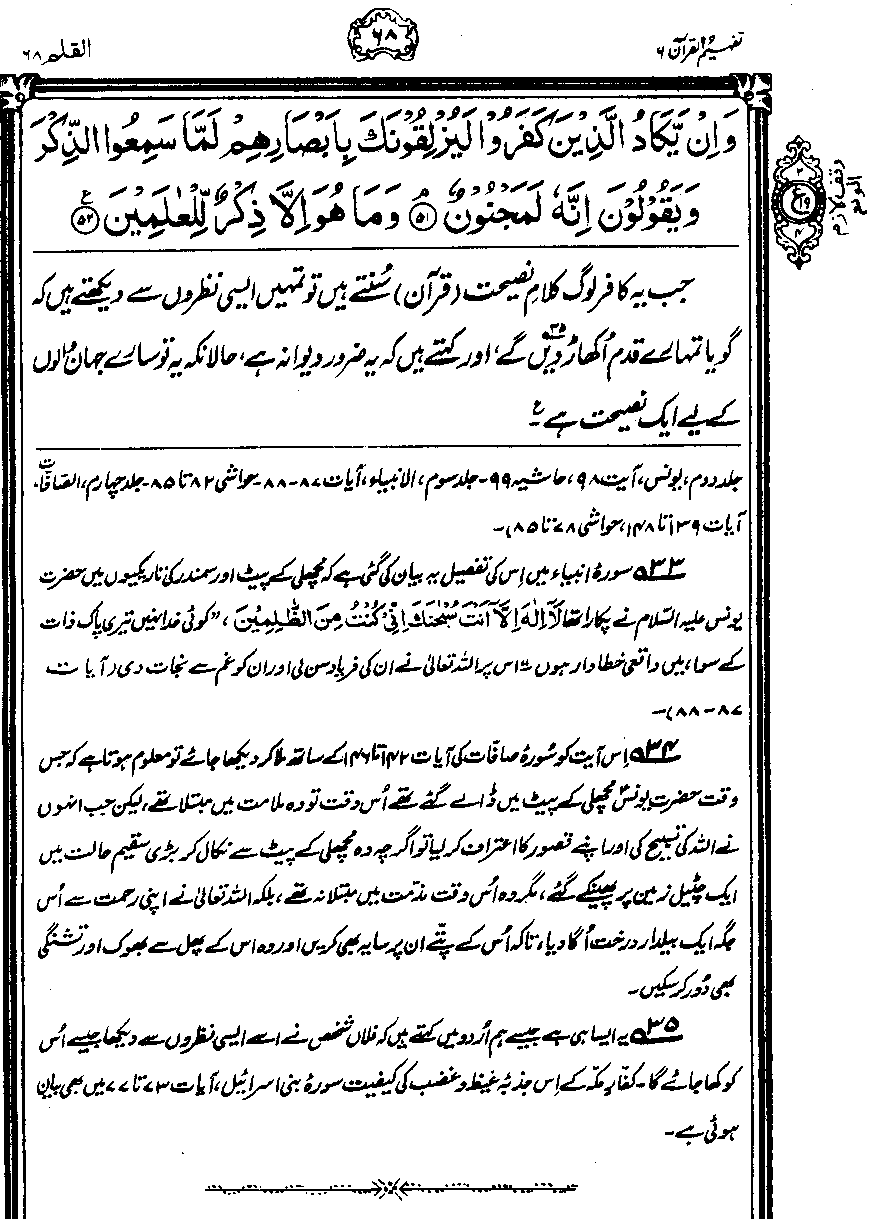 تفہیم القرآن ۶
۶۸
القلم ۶۸
وَاِنْ يَّكَادُ الَّذِيْنَ كَفَرُوْا لَيُزْلِقُوْنَكَ بِاَبْصَارِهِمْ لَمَّا سَمِعُوا الذِّكْرَ
وَيَقُوْلُوْنَ اِنَّهٗ لَمَجْنُوْنٌ ۘ ﴿۵۱﴾ وَمَا هُوَ اِلَّا ذِكْرٌ لِّلْعٰلَمِيْنَ ﴿۵۲﴾ ع
جب یہ کافر لوگ کلامِ نصیحت (قرآن) سُنتے ہیں تو تمہیں ایسی نظروں سے دیکھتے ہیں کہ
گویا تمہارے قدم اُکھاڑ دیں گے،۳۵ اور کہتے ہیں کہ یہ ضرور دیوانہ ہے، حالانکہ یہ تو سارے جہان والوں
کے لیے ایک نصیحت ہے۔ ع
جلد دوم، یونس، آیت ۹۸، حاشیہ ۹۹۔ جلد سوم، الانبیاء، آیات ۸۷-۸۸۔ حواشی ۸۲ تا ۸۵۔ جلد چہارم، الصّافّات،
آیات ۱۳۹ تا ۱۴۸، حواشی ۷۸ تا ۸۵)۔
۳۳ سورۂ انبیاء میں اِس کی تفصیل یہ بیان کی گئی ہے کہ مچھلی کے پیٹ اور سمندر کی تاریکیوں میں حضرت
یونس علیہ السّلام نے پکارا تھا لَآ اِلٰهَ اِلَّآ اَنْتَ سُبْحٰنَكَ اِنِّيْ كُنْتُ مِنَ الظّٰلِمِيْنَ، ”کوئی خدا نہیں تیری پاک ذات
کے سوا، میں واقعی خطاوار ہوں“۔ اس پر اللہ تعالیٰ نے ان کی فریاد سن لی اور ان کو غم سے نجات دی (آیات
۸۷-۸۸)۔
۳۴ اِس آیت کو سُورۂ صافّات کی آیات ۱۴۲ تا ۱۴۶ کے ساتھ ملا کر دیکھا جائے تو معلوم ہوتا ہے کہ جس
وقت حضرت یونسؑ مچھلی کے پیٹ میں ڈالے گئے تھے اُس وقت تو وہ ملامت میں مبتلا تھے، لیکن جب انہوں
نے اللہ کی تسبیح کی اور اپنے قصور کا اعتراف کر لیا تو اگرچہ وہ مچھلی کے پیٹ سے نکال کر بڑی سقیم حالت میں
ایک چٹیل زمین پر پھینکے گئے، مگر وہ اُس وقت مذمّت میں مبتلا نہ تھے، بلکہ اللہ تعالیٰ نے اپنی رحمت سے اُس
جگہ ایک بیلدار درخت اُگا دیا، تاکہ اُس کے پتّے ان پر سایہ بھی کریں اور وہ اس کے پھل سے بھوک اور تشنگی
بھی دُور کر سکیں۔
۳۵ یہ ایسا ہی ہے جیسے ہم اُردو میں کہتے ہیں کہ فلاں شخص نے اسے ایسی نظروں سے دیکھا جیسے اُس
کو کھا جائے گا۔ کفّارِ مکّہ کے اِس جذبۂ غیظ و غضب کی کیفیت سورۂ بنی اسرائیل، آیات ۷۳ تا ۷۷ میں بھی بیان
ہوئی ہے۔